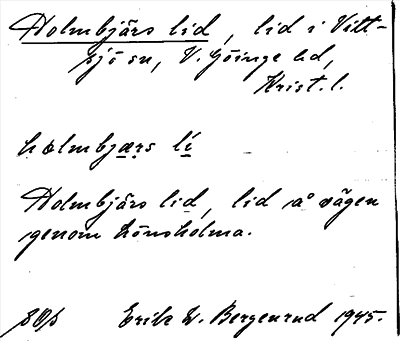 Holmbjärs lid, lid i Vitt-
sjö sn, V. Göinge hd,
Krist. l.
hɷlmbjærs lí
Holmbjärs lid, lid å vägen
genom Hönsholma.
Erik W. Bergenrud 1945.